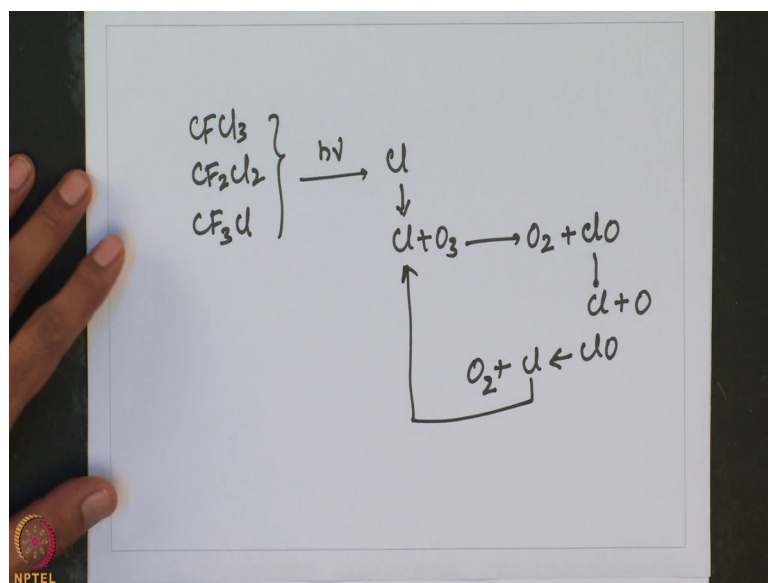 CFCl3
CF2Cl2
CF3Cl
hν
Cl
Cl + O3 → O2 + ClO
Cl + O
O2 + Cl ← ClO
NPTEL